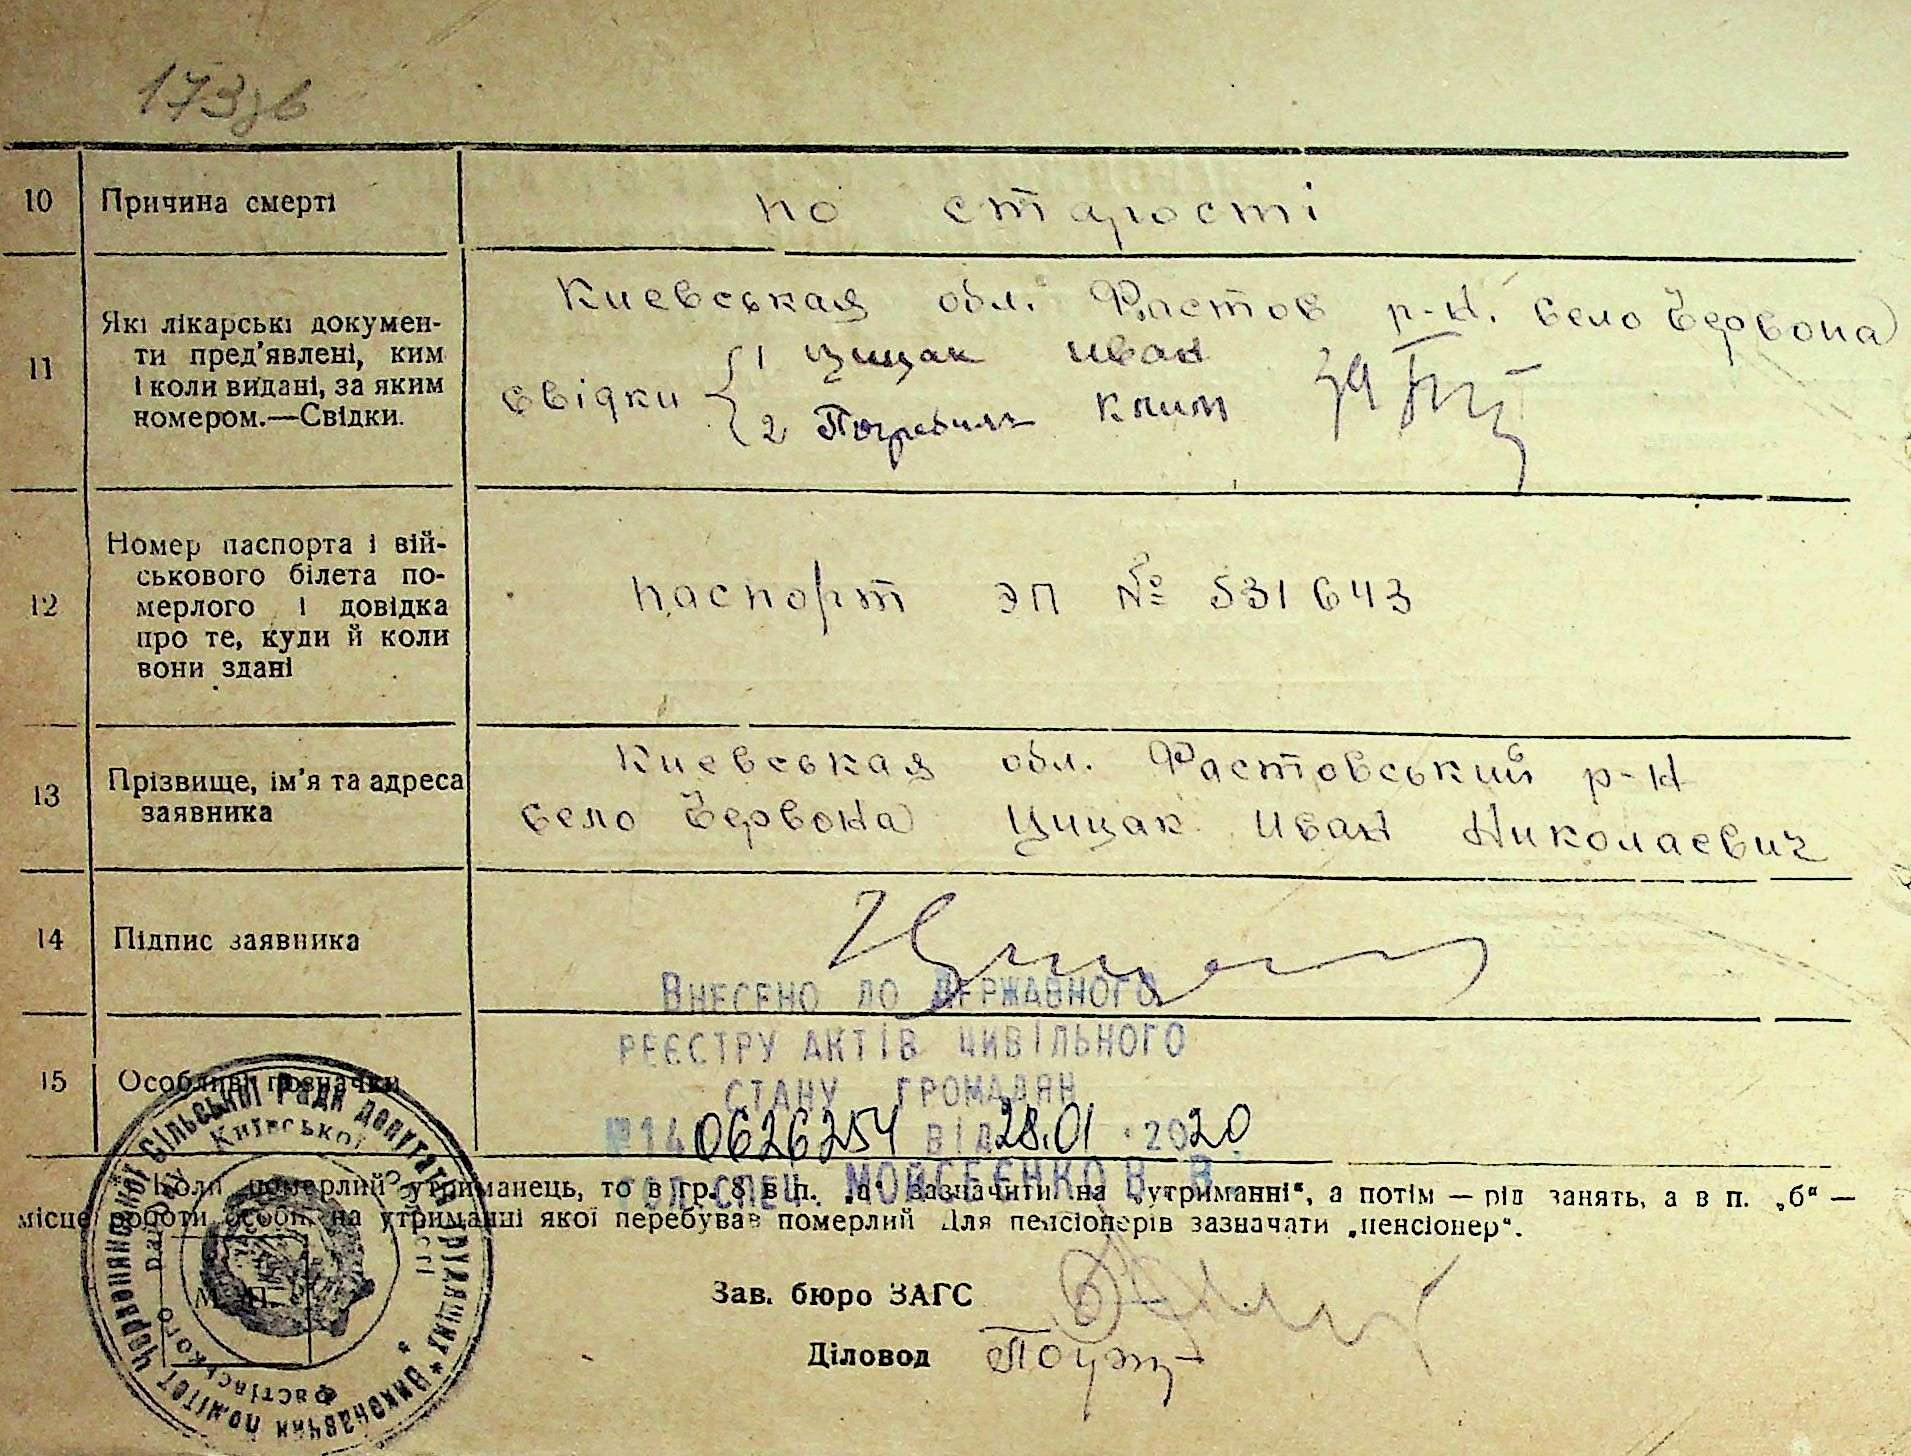 173зв
10 Причина смерті по старості
11 Які лікарські докумен-
ти пред'явлені, ким
і коли видані, за яким
номером.—Свідки.
Киевськая обл. Фастов р-н. село Червона
свідки { 1 Цицак Иван
2 Клим
12 Номер паспорта і вій-
ськового білета по-
мерлого і довідка
про те, куди й коли
вони здані
паспорт ЭП № 531643
13 Прізвище, ім'я та адреса
заявника
Киевськая обл. Фастовський р-н
село Червона Цицак Иван Николаевич
14 Підпис заявника
Внесено до Державного
реєстру актів цивільного
стану громадян
15 Особливі позначки
№140626254 від 28.01.2020
Гол.спец. Мойсеєнко В. В.
Коли померлий утриманець, то в гр. 8 в п. „а“ зазначити на „утриманні“, а потім — рід занять, а в п. „б“ —
місце роботи особи, на утриманні якої перебував померлий Для пенсіонерів зазначати „пенсіонер“.
М. П.
Зав. бюро ЗАГС
Діловод
Виконавчий комітет Червонянської сільської Ради депутатів трудящих
Фастівського району Київської області